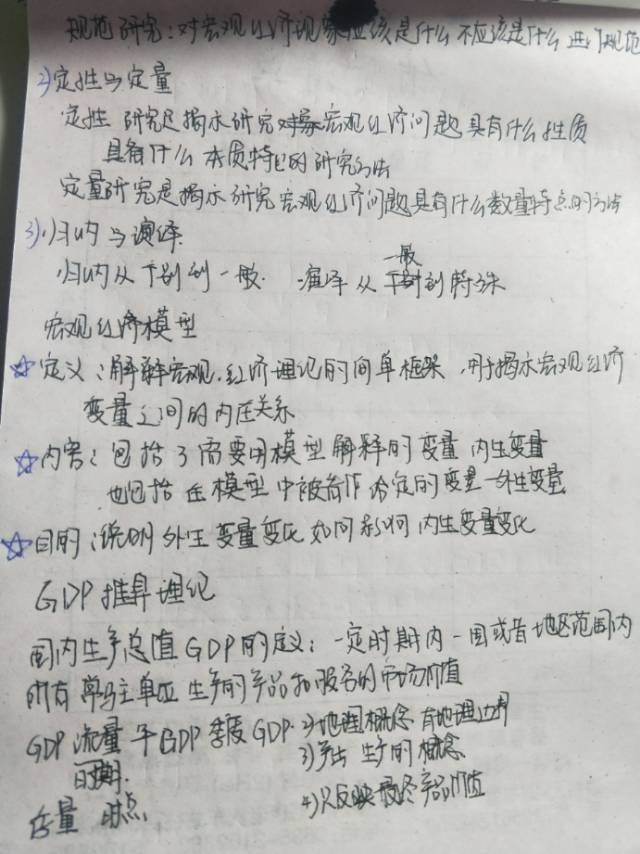 规范研究:对宏观经济现象应该是什么不应该是什么进行规范
2)定性与定量
定性研究是揭示研究宏观经济问题具有什么性质
具有什么本质特征的研究方法
定量研究是揭示研究宏观经济问题具有什么数量特点的方法
3)归内与演绎
归内从个别到一般. 演绎从一般到特殊
宏观经济模型
☆定义:解释宏观经济理论的间单框架,用于揭示宏观经济
变量之间的内在关系
☆内容:包括了需要用模型解释的变量内生变量
也包括在模型中被看作给定的变量—外生变量
☆目的:说明外生变量变化如何影响内生变量变化
GDP推算理论
国内生产总值GDP的定义:一定时期内一国或者地区范围内
所有常驻主单位生产的产品和服务的市场价值
GDP 流量 年GDP 季度GDP 2)地理概念 有地理边界
日期. 3)产出 生产的概念
存量 时点 4)只反映最终产品价值